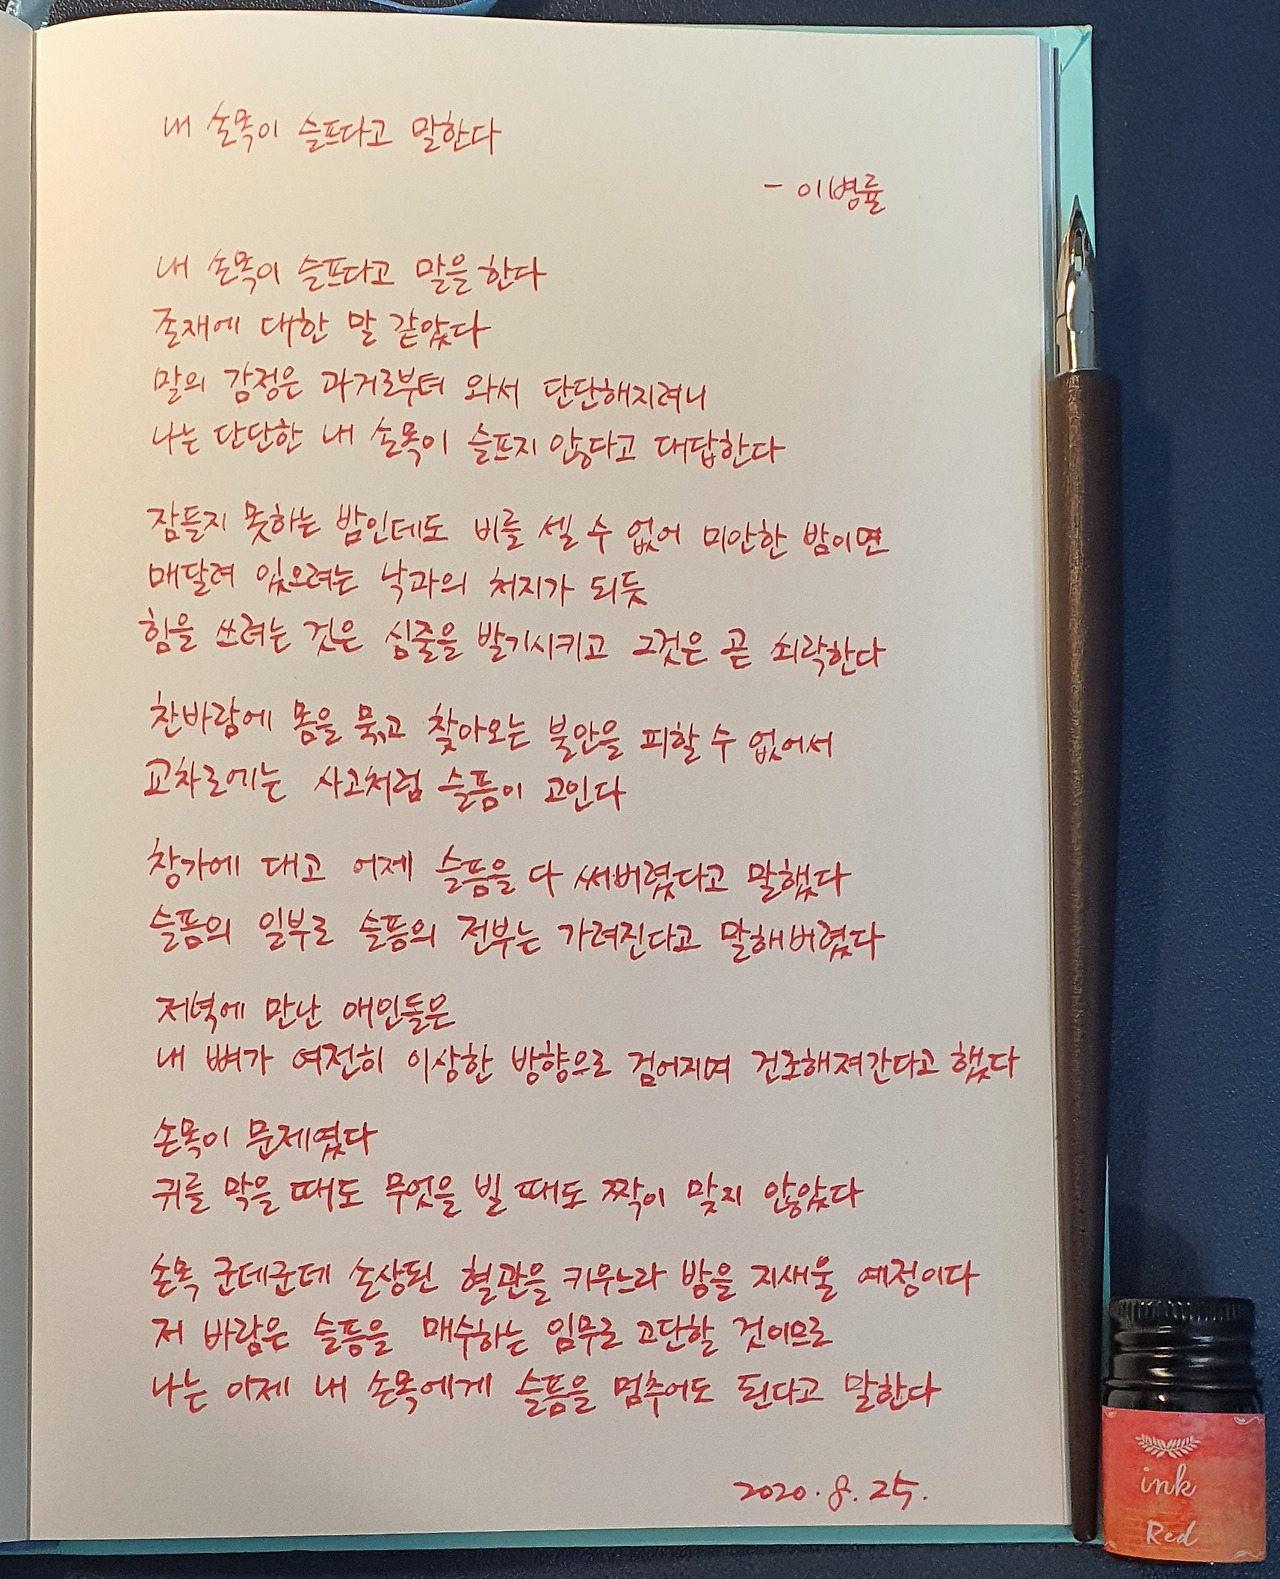 내 손목이 슬프다고 말한다
- 이병률
내 손목이 슬프다고 말을 한다
존재에 대한 말 같았다
말의 감정은 과거로부터 와서 단단해지려니
나는 단단한 내 손목이 슬프지 않다고 대답한다
잠들지 못하는 밤인데도 비를 셀 수 없어 미안한 밤이면
매달려 있으려는 낙과의 처지가 되듯
힘을 쓰려는 것은 심줄을 발기시키고 그것은 곧 쇠락한다
찬바람에 몸을 묶고 찾아오는 불안을 피할 수 없어서
교차로에는 사고처럼 슬픔이 고인다
창가에 대고 어제 슬픔을 다 써버렸다고 말했다
슬픔의 일부로 슬픔의 전부는 가려진다고 말해버렸다
저녁에 만난 애인들은
내 뼈가 여전히 이상한 방향으로 검어지며 건조해져간다고 했다
손목이 문제였다
귀를 막을 때도 무엇을 빌 때도 짝이 맞지 않았다
손목 군데군데 손상된 혈관을 키우느라 밤을 지새울 예정이다
저 바람은 슬픔을 매수하는 임무로 고단할 것이므로
나는 이제 내 손목에게 슬픔을 멈추어도 된다고 말한다
2020. 8. 25.
ink
Red